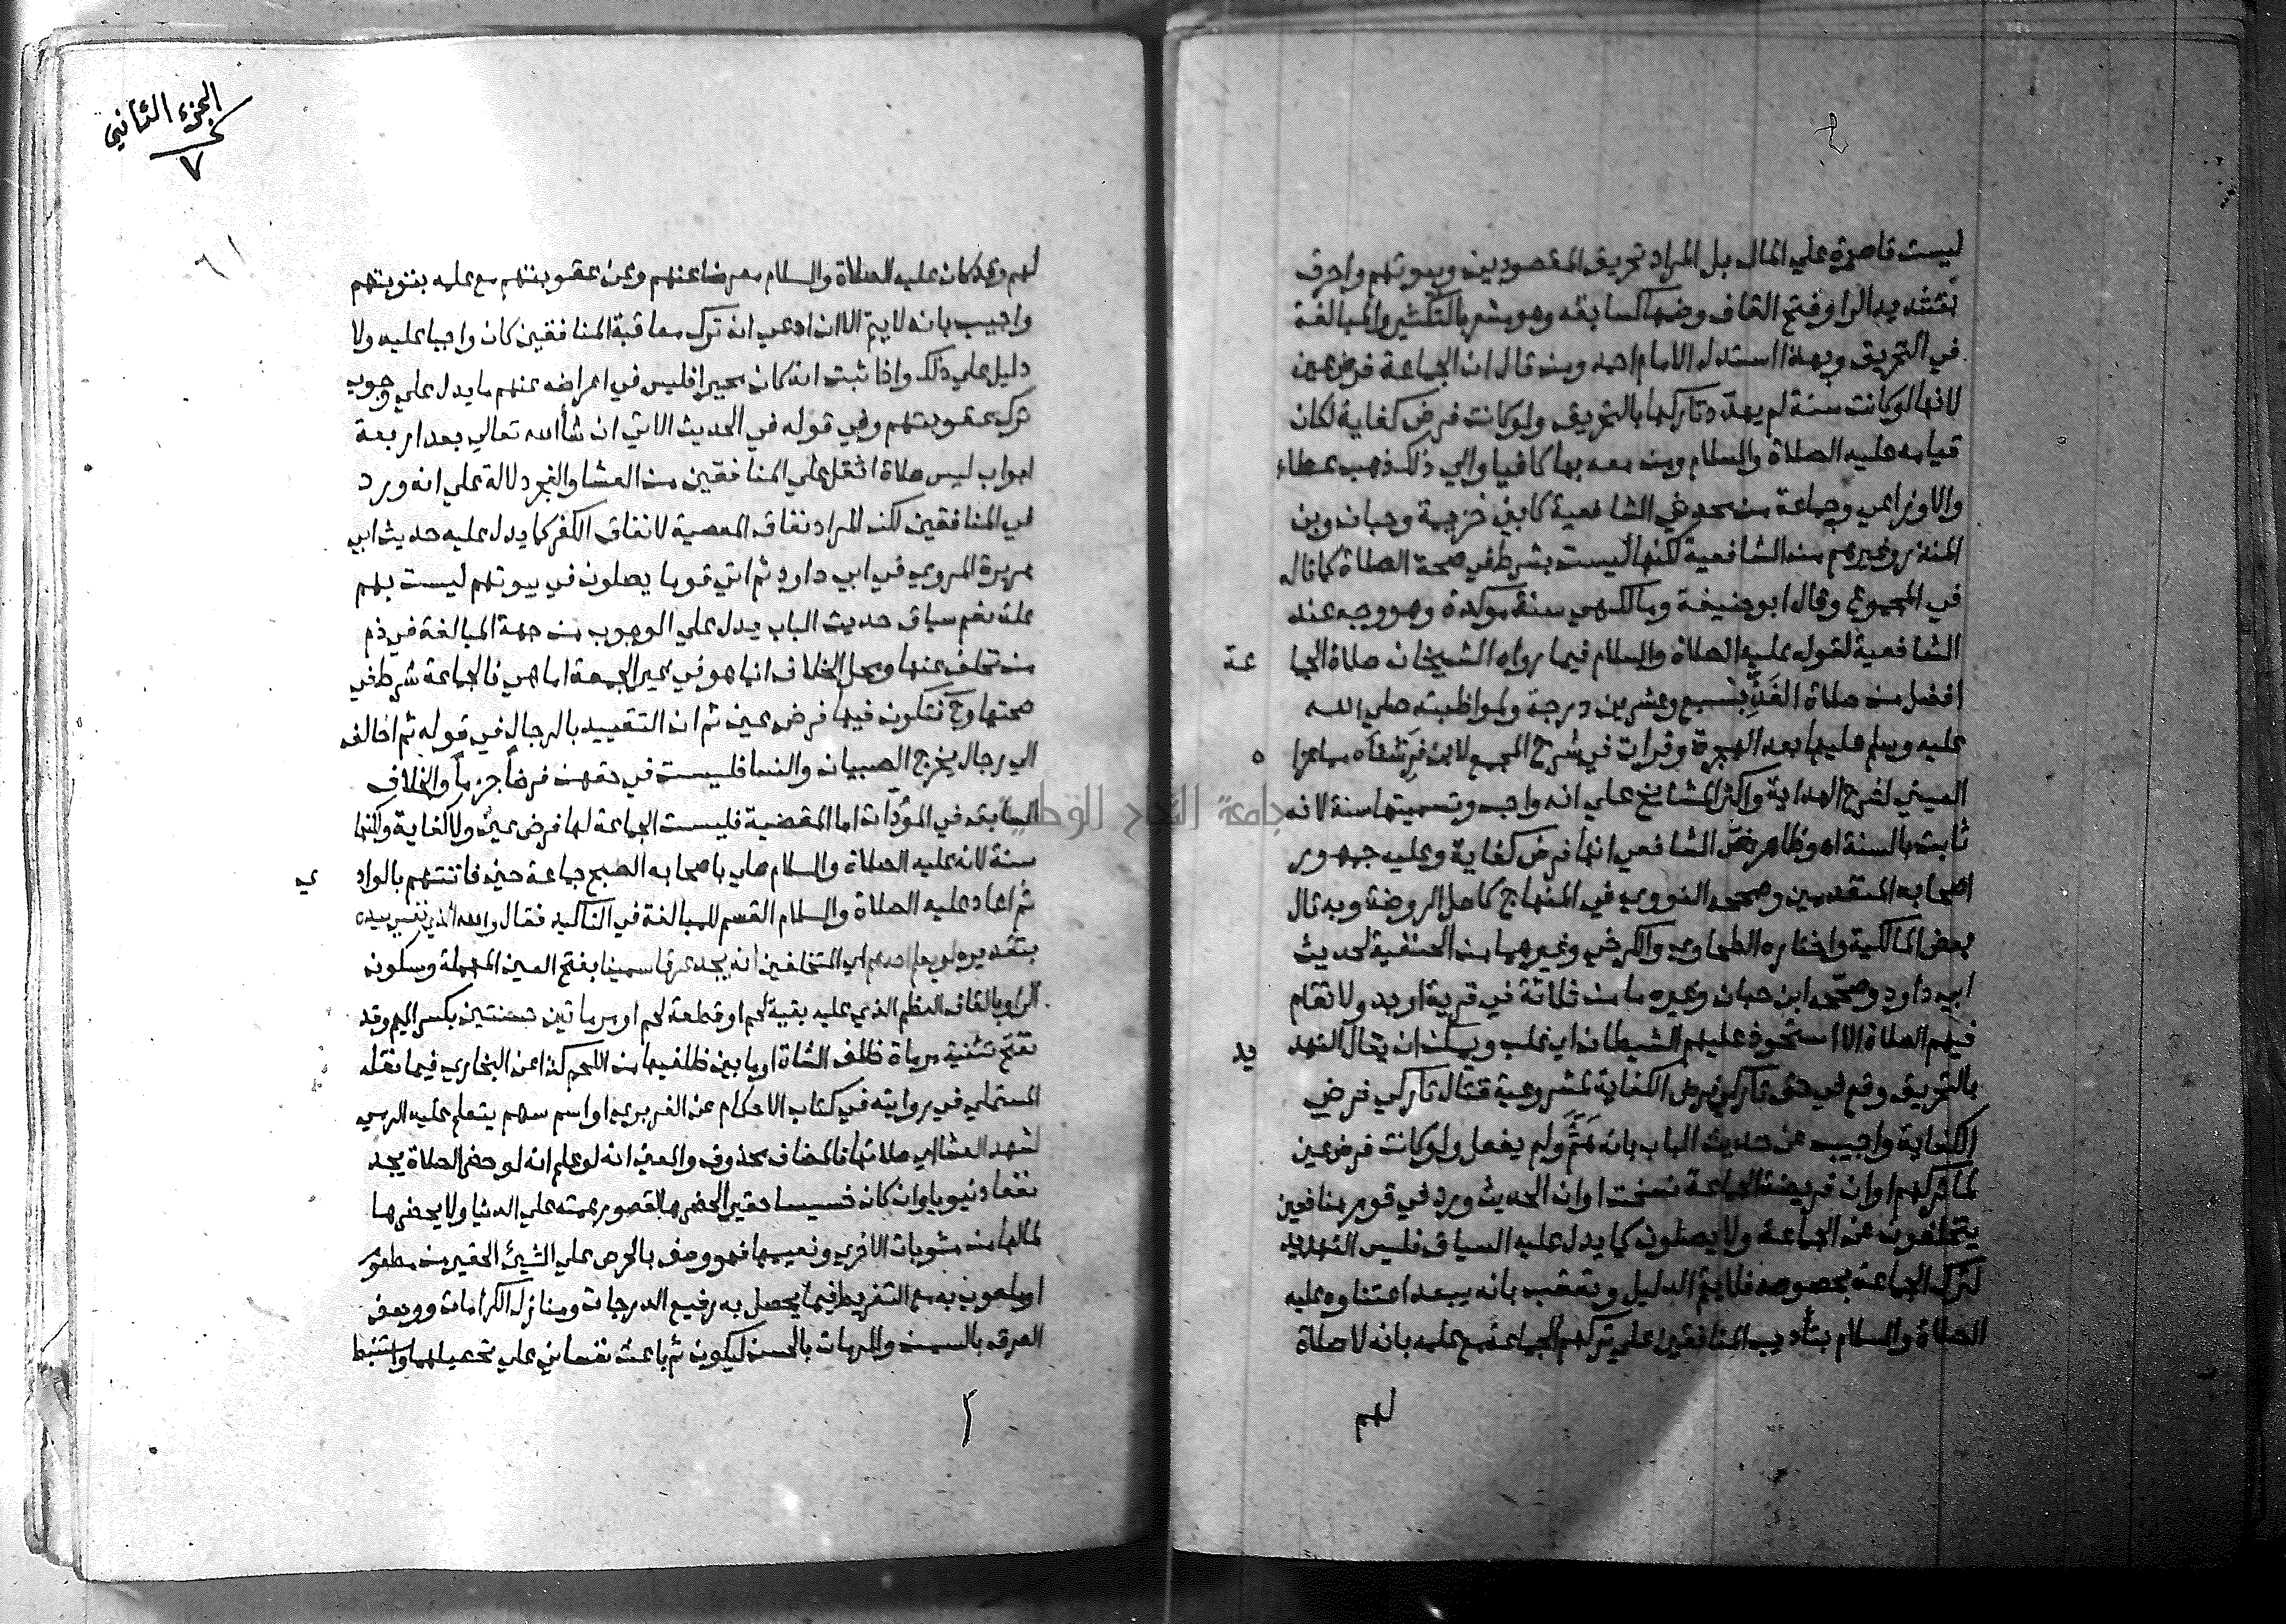 ليست قاصرة علي المال بل المراد تحريق المقصودين وبيوتهم واحرق
بتشديد الرا وفتح القاف وضمها كسابقه وهو مشعر بالتكثير والمبالغة
في التحريق وبهذا استدل الامام احمد ومن قال ان الجماعة فرض عين
لانها لو كانت سنة لم يهدد تاركها بالتحريق ولو كانت فرض كفاية لكان
قيامه عليه الصلاة والسلام ومن معه بها كافيا والي ذلك ذهب عطاء
والاوزاعي وجماعة من محدثي الشافعية كابني خزيمة وحبان وبن
المنذر وغيرهم من الشافعية لكنها ليست بشرط في صحة الصلاة كما قاله
في المجموع وقال ابو حنيفة ومالك هي سنة موكدة وهو وجه عند
الشافعية لقوله عليه الصلاة والسلام فيما رواه الشيخان صلاة الجما عة
افضل من صلاة الفَذِّ بسبع وعشرين درجة ولمواظبته صلي الله
عليه وسلم عليها بعد الهجرة وقرات في شرح المجمع لابن فرشتاه مما عزا ه
العيني لشرح الهداية واكثر المشايخ علي انه واجب وتسميتها سنة لانه
ثابت بالسنة اه وظاهر نص الشافعي انها فرض كفاية وعليه جمهور
اصحابه المتقدمين وصححه النووي في المنهاج كاصل الروضة وبه قال
بعض المالكية واختاره الطحاوي والكرخي وغيرهما من الحنفية لحديث
ابي داود وصححه ابن حبان وغيره ما من ثلاثة في قرية او بدو لا تقام
فيهم الصلاة الا استحوذ عليهم الشيطان اي غلب ويمكن ان يقال التهد يد
بالتحريق وقع في حق تاركي فرض الكفاية لمشروعية قتال تاركي فرض
الكفاية واجيب عن حديث الباب بانه هَمَّ ولم يفعل ولو كانت فرض عين
لما تركهم او ان فريضة الجماعة نسخت او ان الحديث ورد في قوم منافقين
يتخلفون عن الجماعة ولا يصلون كما يدل عليه السياق فليس التهديد
لترك الجماعة بخصوصه فلا يتم الدليل وتعقب بانه يبعد اعتناوه عليه
الصلاة والسلام بتأديب المنافقين علي تركهم الجماعة مع علمه بانه لا صلاة
لهم
الجزء الثاني
٧
لهم وقد كان عليه الصلاة والسلام معرضا عنهم وعن عقوبتهم مع علمه بتوبتهم
واجيب بانه لا يتم الا ان ادعي ان ترك معاقبة المنافقين كان واجبا عليه ولا
دليل علي ذلك واذا ثبت انه كان مخيرا فليس في اعراضه عنهم ما يدل علي وجوب
ترك عقوبتهم وفي قوله في الحديث الاتي ان شاألله تعالي بعد اربعة
ابواب ليس صلاة اثقل علي المنافقين من العشا والفجر دلالة علي انه ورد
في المنافقين لكن المراد نفاق المعصية لا نفاق الكفر كما يدل عليه حديث ابي
هريرة المروي في ابي داود ثم اتي قوما يصلون في بيوتهم ليست بهم
علة نعم سياق حديث الباب يدل علي الوجوب من جهة المبالغة في ذم
من تخلف عنها ومحل الخلاف انما هو في غير الجمعة اما هي فالجماعة شرط في
صحتها وح فتكون فيها فرض عين ثم ان التقييد بالرجال في قوله ثم اخالف
الي رجال يخرج الصبيان والنسا فليست في حقهن فرضاً جزماً والخلاف
السابق في المؤدّات اما المقضية فليست الجماعة لها فرض عين ولا كفاية ولكنها
سنة لانه عليه الصلاة والسلام صلي باصحابه الصبح جماعة حين فاتتهم بالواد ي
ثم اعاد عليه الصلاة والسلام القسم للمبالغة في التاكيد فقال والله الذي نفسي بيده
بتقديره لو يعلم احدهم اي المتخلفين انه يجد عرقا سمينا بفتح العين المهملة وسكون
الرا وبالقاف العظم الذي عليه بقية لحم او قطعة لحم او مرماتين حسنتين بكسر الميم وقد
تفتح تثنية مرماة ظلف الشاة او ما بين ظلفيها من اللحم كذا عن البخاري فيما نقله
المستملي في روايته في كتاب الاحكام عن الفربري او اسم سهم يتعلم عليه الرمي
لشهد العشا اي صلاتها فالمضاف محذوف والمعني انه لو علم انه لو حضر الصلاة يجد
نفعا دنيويا وان كان خسيسا حقيرا لحضرها لقصور همته علي الدنيا ولا يحضرها
لما لها من مثوبات الاخري ونعيمها فهو وصف بالحرص علي الشيئ الحقير من مطعوم
او ملعوب به مع التفريط فيما يحصل به رفيع الدرجات ومنازل الكرامات ووصف
العرق بالسمن والمرمات بالحسن ليكون ثم باعث نفساني علي تحصيلهما واستنبط
جامعة النجاح الوطنية